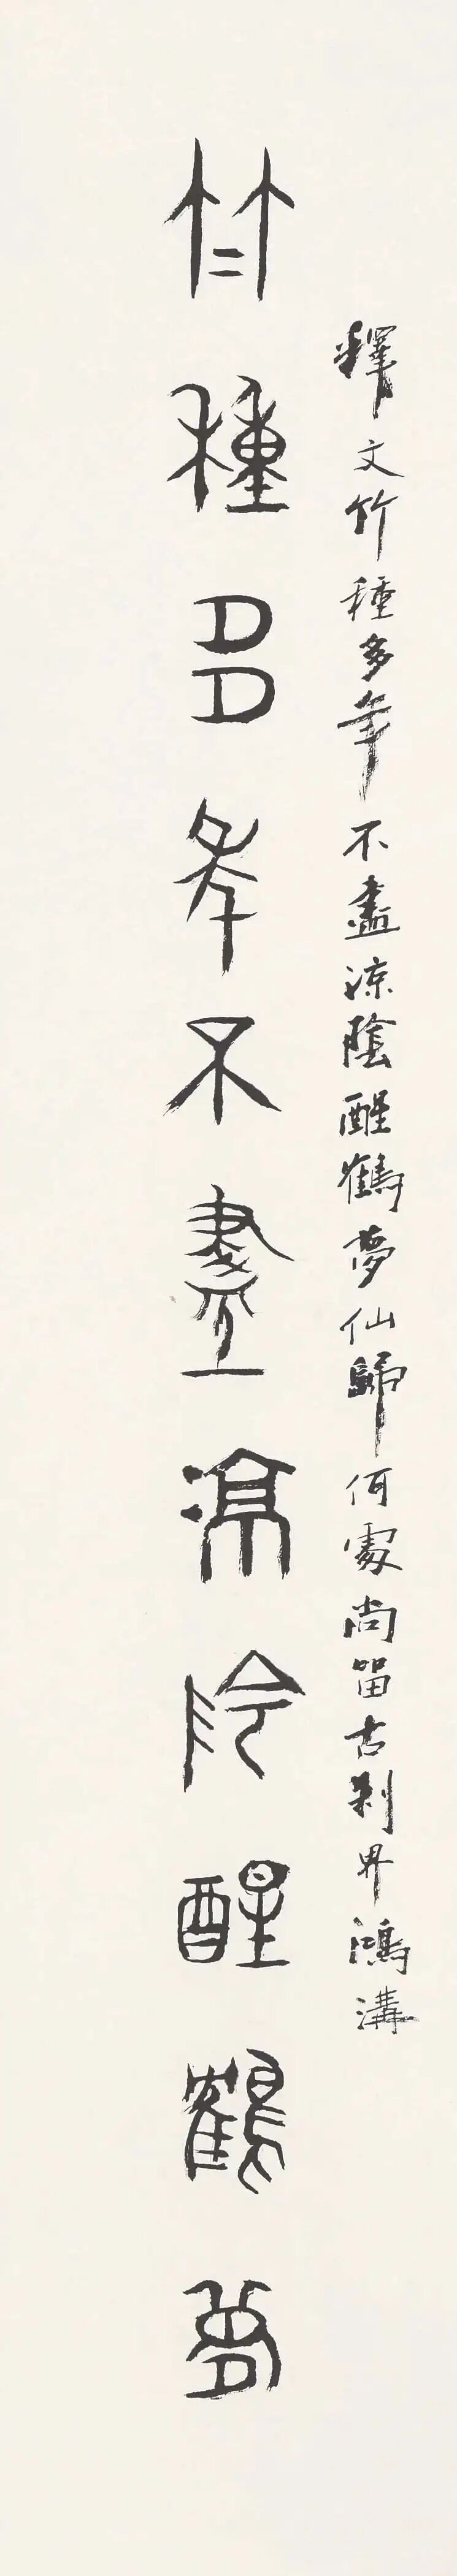 釋文竹種多年不盡涼陰醒鶴夢仙歸何處尚留古刹界鴻溝
竹種多年不盡涼陰醒鶴夢